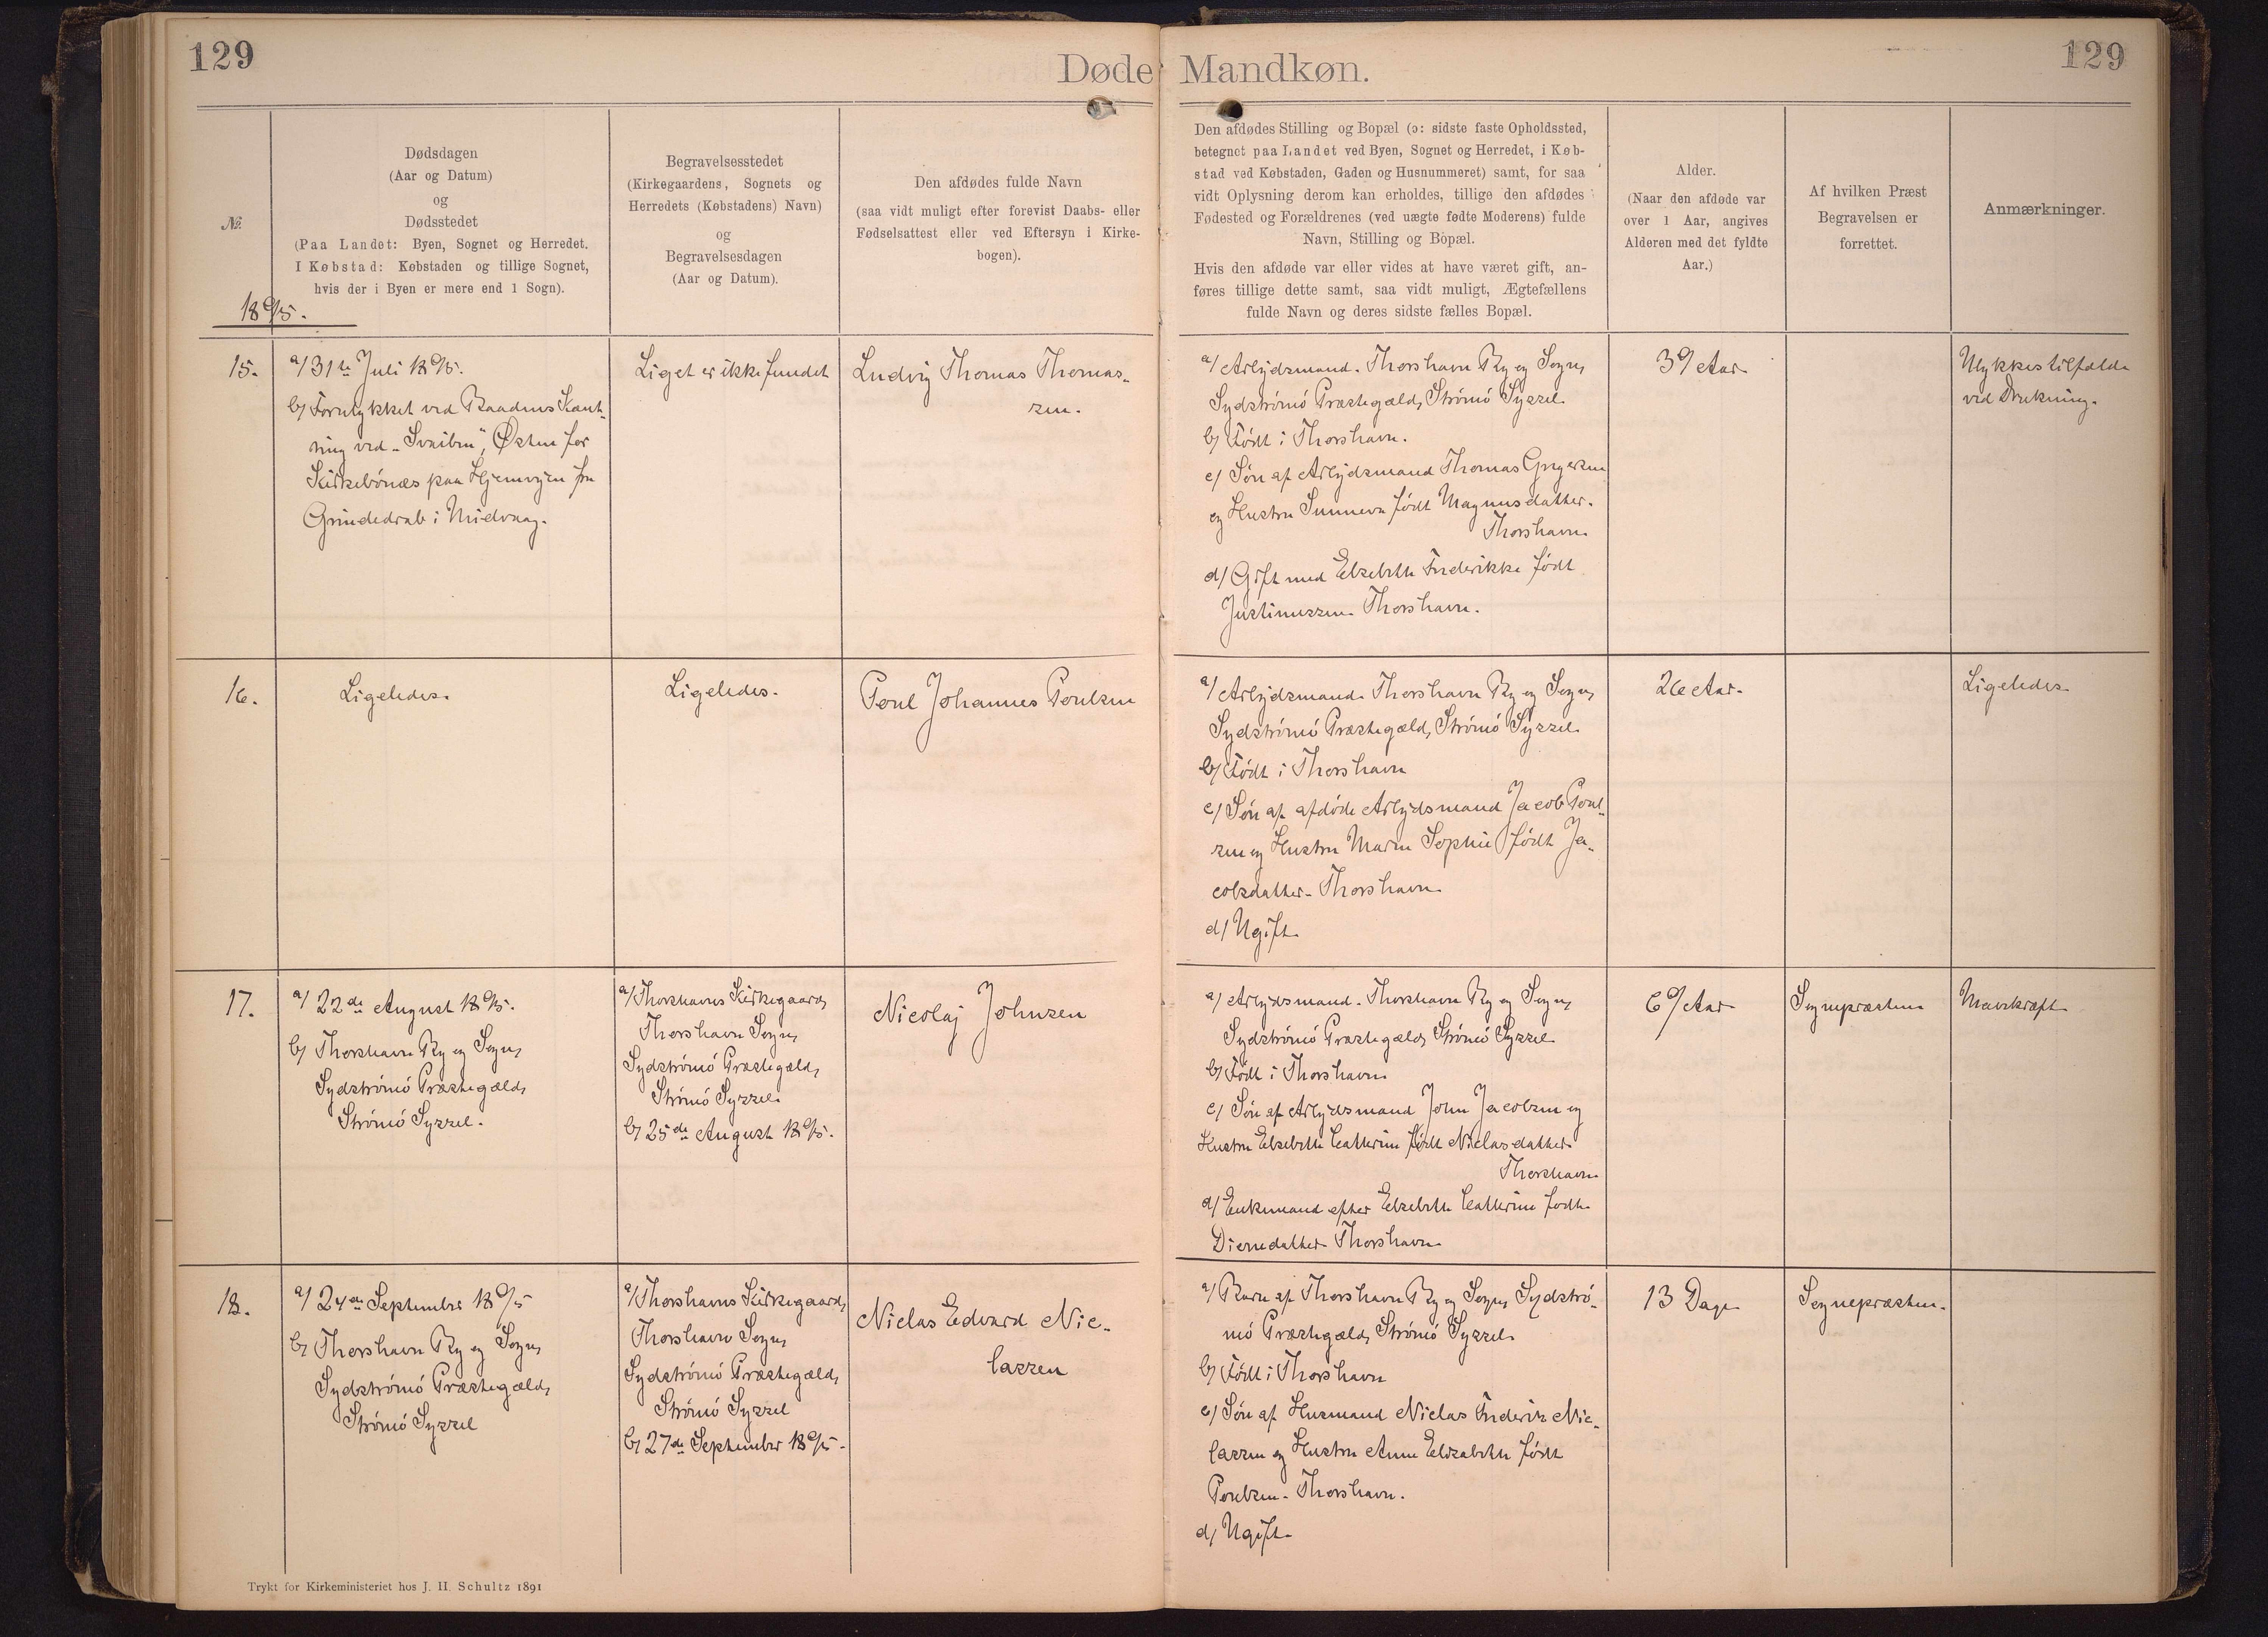 129
Døde Mandkøn.
129
№.
Dødsdagen
(Aar og Datum)
og
Dødsstedet
(Paa Landet: Byen, Sognet og Herredet.
I Købstad: Købstaden og tillige Sognet,
hvis der i Byen er mere end 1 Sogn).
Begravelsesstedet
(Kirkegaardens, Sognets og
Herredets (Købstadens) Navn)
og
Begravelsesdagen
(Aar og Datum).
Den afdødes fulde Navn
(saa vidt muligt efter forevist Daabs- eller
Fødselsattest eller ved Eftersyn i Kirke-
bogen).
Den afdødes Stilling og Bopæl (ɔ: sidste faste Opholdssted,
betegnet paa Landet ved Byen, Sognet og Herredet, i Køb-
stad ved Købstaden, Gaden og Husnummeret) samt, for saa
vidt Oplysning derom kan erholdes, tillige den afdødes
Fødested og Forældrenes (ved uægte fødte Moderens) fulde
Navn, Stilling og Bopæl.
Hvis den afdøde var eller vides at have været gift, an-
føres tillige dette samt, saa vidt muligt, Ægtefællens
fulde Navn og deres sidste fælles Bopæl.
Alder.
(Naar den afdøde var
over 1 Aar, angives
Alderen med det fyldte
Aar.)
Af hvilken Præst
Begravelsen er
forrettet.
Anmærkninger.
1895.
15.
a/ 31te Juli 1895.
b/ Forulykket ved Baadens Kænt-
ring ved "Svaiben", Østen for
Kirkebönæs paa Hjemvejen fra
Grindedrab i Midvaag.
Liget er ikke fundet
Ludvig Thomas Thomas-
sen.
a/ Arbejdsmand. Thorshavn By og Sogn,
Sydströmö Præstegæld, Strömö Syssel.
b/ Født i Thorshavn.
c/ Søn af Arbejdsmand Thomas Gregersen
og Hustru Sunneva født Magnusdatter.
Thorshavn.
d/ Gift med Elsebeth Frederikke født
Justinussen. Thorshavn.
39 Aar
Ulykkestilfælde
ved Drukning.
16.
Ligeledes.
Ligeledes.
Poul Johannes Poulsen
a/ Arbejdsmand. Thorshavn By og Sogn,
Sydströmö Præstegæld, Strömö Syssel.
b/ Født i Thorshavn
c/ Søn af afdøde Arbejdsmand Jacob Poul-
sen og Hustru Maren Sophie født Ja-
cobsdatter. Thorshavn.
d/ Ugift.
26 Aar.
Ligeledes.
17.
a/ 22de August 1895.
b/ Thorshavn By og Sogn,
Sydströmö Præstegæld,
Strömö Syssel.
a/ Thorshavns Kirkegaard,
Thorshavn Sogn,
Sydströmö Præstegæld,
Strömö Syssel.
b/ 25de August 1895.
Nicolaj Johnsen
a/ Arbejdsmand. Thorshavn By og Sogn,
Sydströmö Præstegæld, Strömö Syssel.
b/ Født i Thorshavn
c/ Søn af Arbejdsmand John Jacobsen og
Hustru Elsebeth Catherine født Niclasdatter
Thorshavn
d/ Enkemand efter Elsebeth Catherine født
Dienedatter Thorshavn
69 Aar
Sognepræsten
Mavekræft
18.
a/ 24de September 1895
b/ Thorshavn By og Sogn,
Sydströmö Præstegæld,
Strömö Syssel
a/ Thorshavns Kirkegaard,
Thorshavn Sogn,
Sydströmö Præstegæld,
Strömö Syssel
b/ 27de September 1895.
Niclas Edvard Nic-
lassen
a/ Barn af Thorshavn By og Sogn, Sydströ-
mö Præstegæld, Strömö Syssel.
b/ Født i Thorshavn
c/ Søn af Husmand Niclas Frederik Nic-
lassen og Hustru Anne Elisabeth født
Poulsen. Thorshavn.
d/ Ugift.
13 Dage
Sognepræsten.
Trykt for Kirkeministeriet hos J. H. Schultz 1891